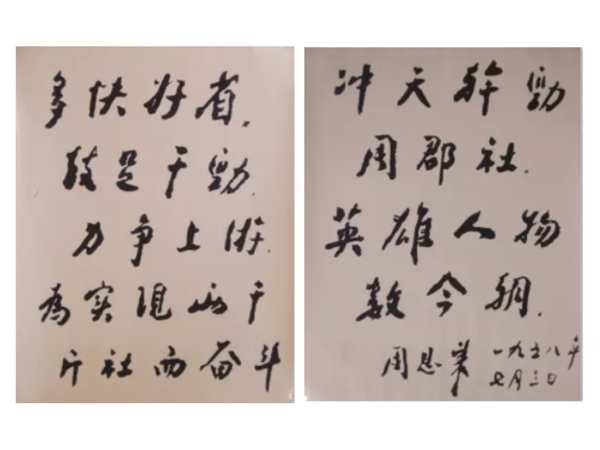 多快好省.
鼓足干勁.
力争上游.
為实现两千
斤社而奋斗
冲天幹勁
周郡社.
英雄人物
数今朝.
周恩来 一九五八年
七月三日